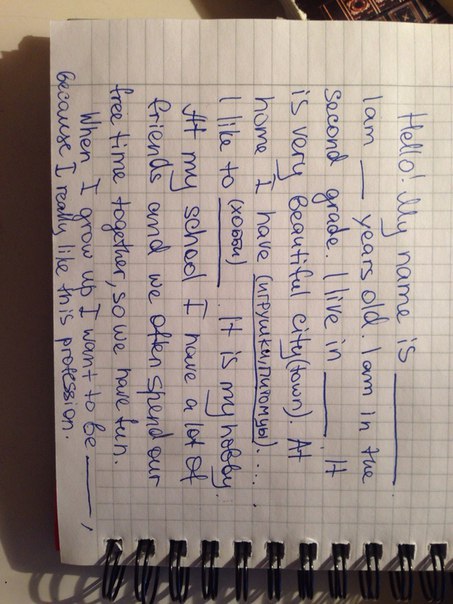 Hello! My name is ________
I am ___ years old. I am in the
second grade. I live in _____. It
is very beautiful city (town). At
home I have (игрушки, питомцы)....
I like to (хобби) _____. It is my hobby.
At my school I have a lot of
friends and we often spend our
free time together, so we have fun.
When I grow up I want to be _____,
because I really like this profession.